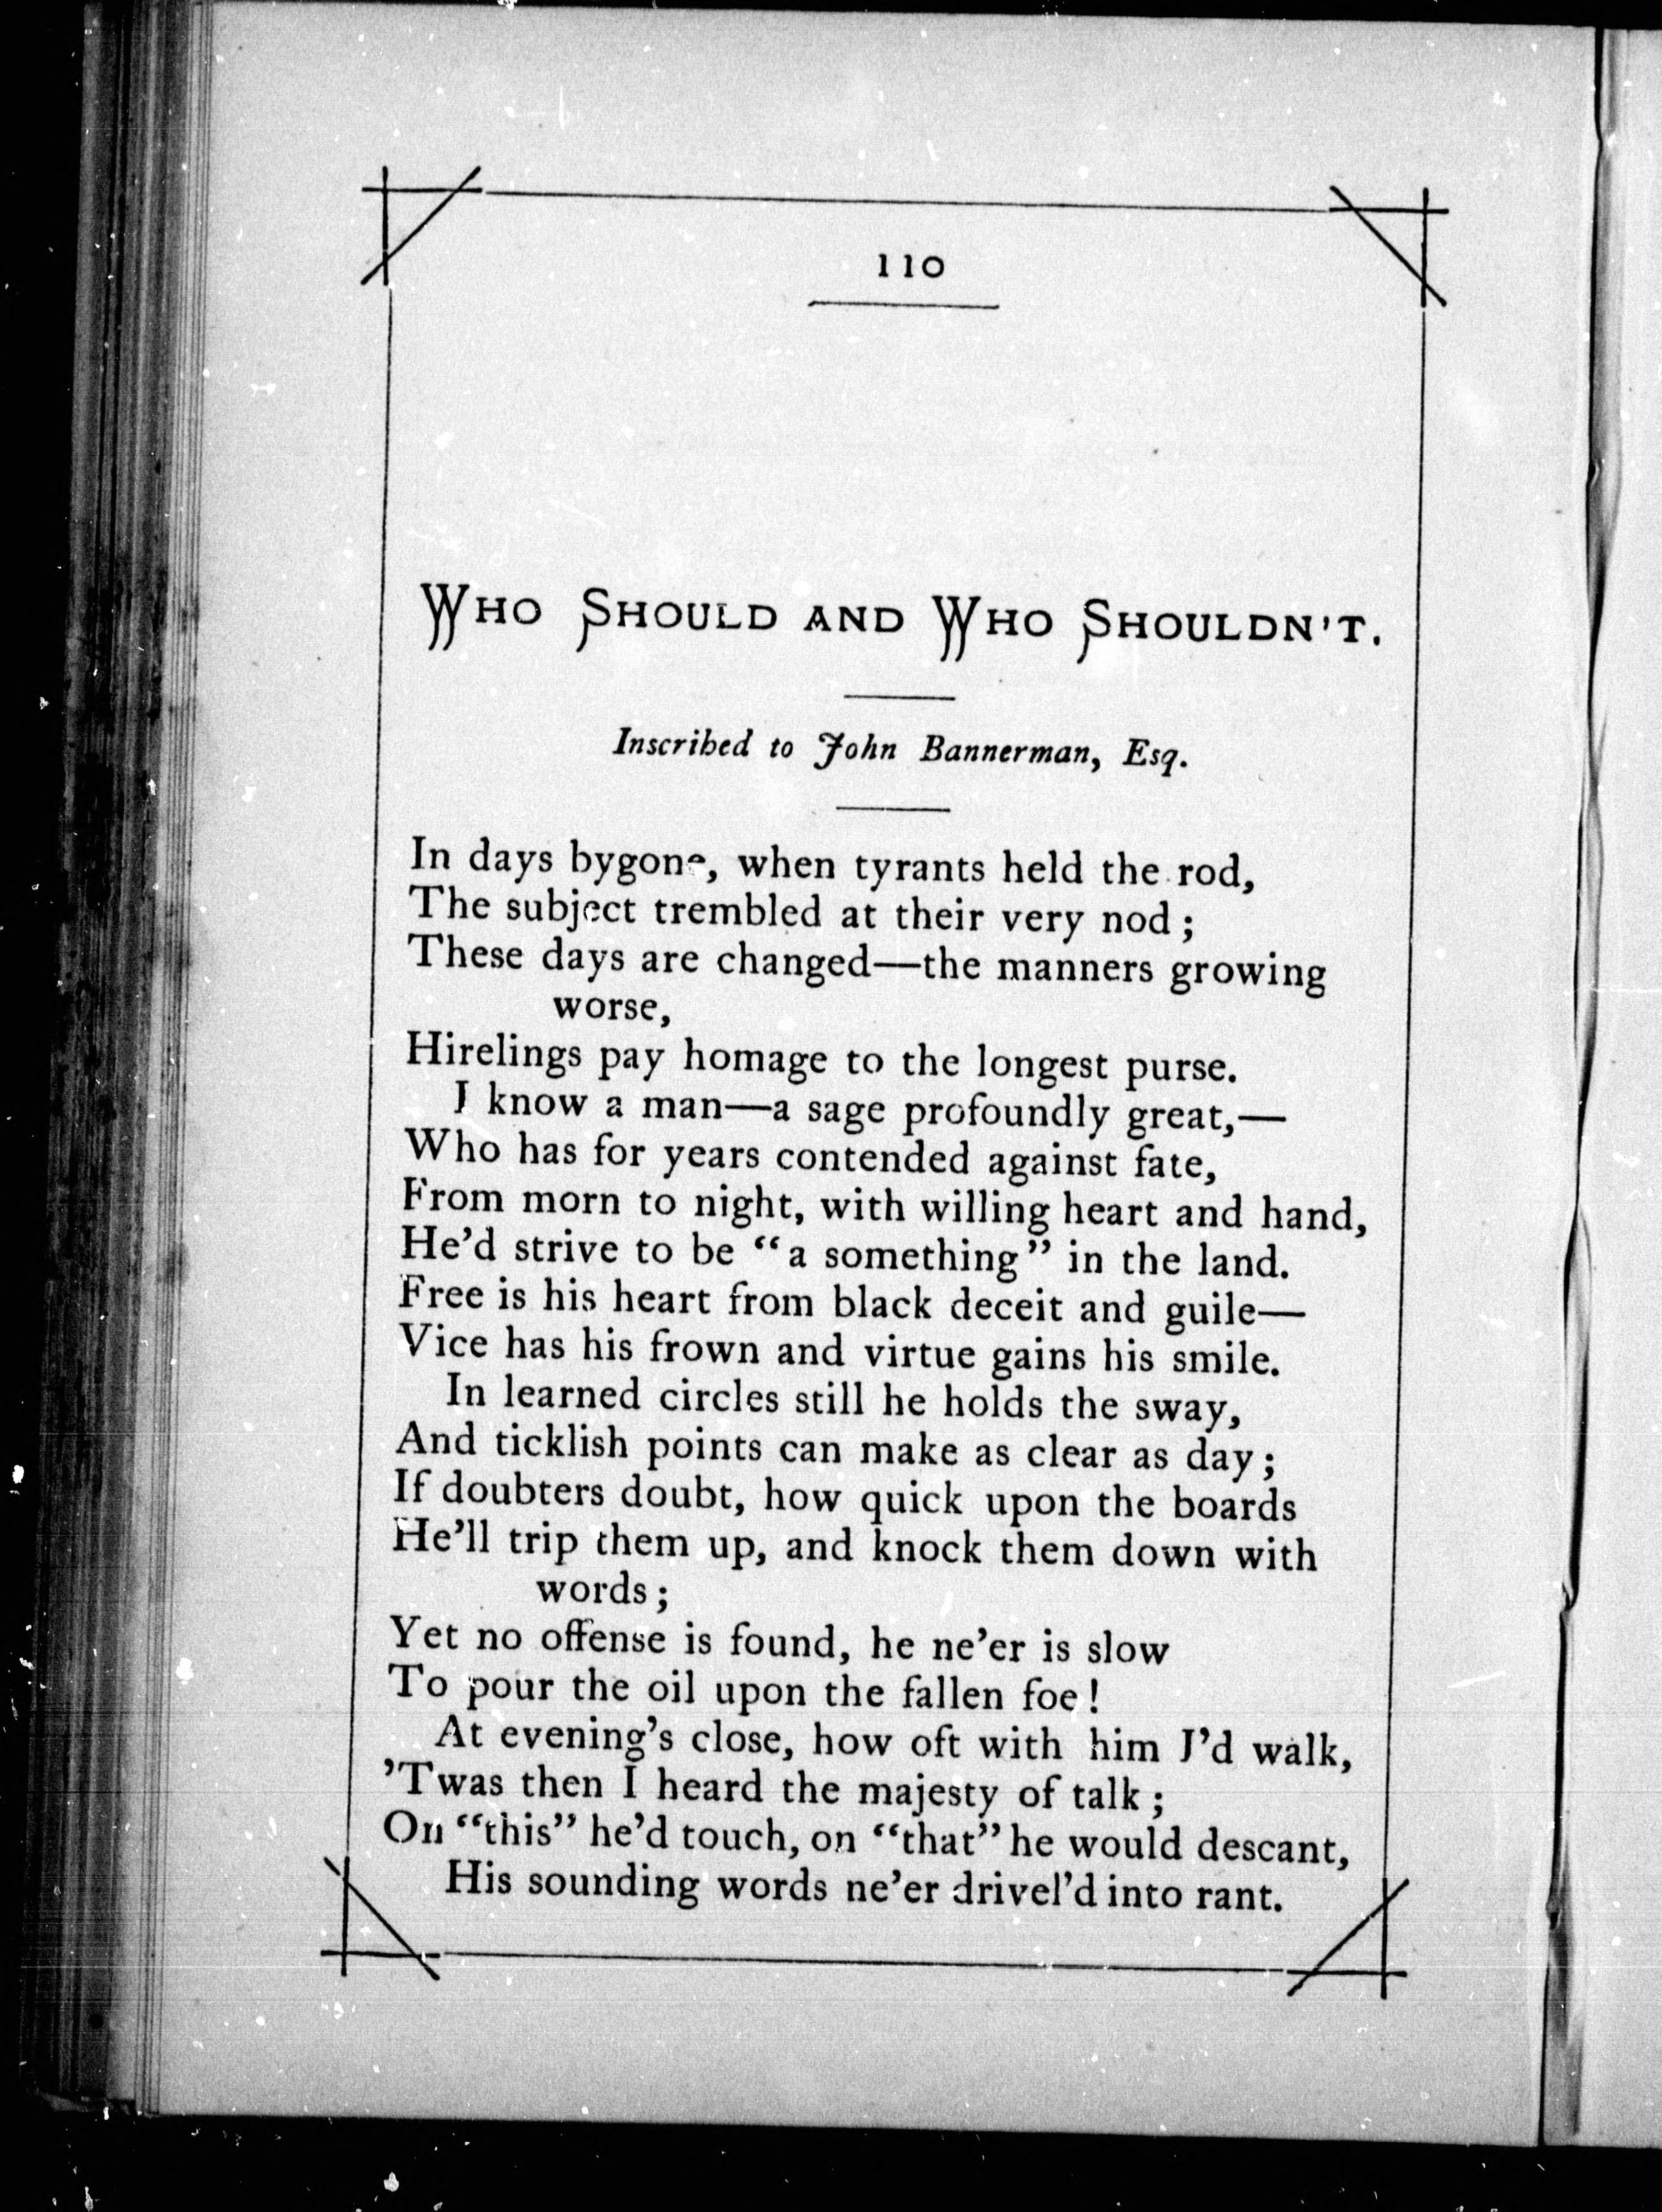 110
WHO SHOULD AND WHO SHOULDN'T.
Inscribed to John Bannerman, Esq.
In days bygone, when tyrants held the rod,
The subject trembled at their very nod ;
These days are changed—the manners growing
worse,
Hirelings pay homage to the longest purse.
I know a man—a sage profoundly great,—
Who has for years contended against fate,
From morn to night, with willing heart and hand,
He'd strive to be "a something" in the land.
Free is his heart from black deceit and guile—
Vice has his frown and virtue gains his smile.
In learned circles still he holds the sway,
And ticklish points can make as clear as day ;
If doubters doubt, how quick upon the boards
He'll trip them up, and knock them down with
words ;
Yet no offense is found, he ne'er is slow
To pour the oil upon the fallen foe !
At evening's close, how oft with him I'd walk,
'Twas then I heard the majesty of talk ;
On "this" he'd touch, on "that" he would descant,
His sounding words ne'er drivel'd into rant.